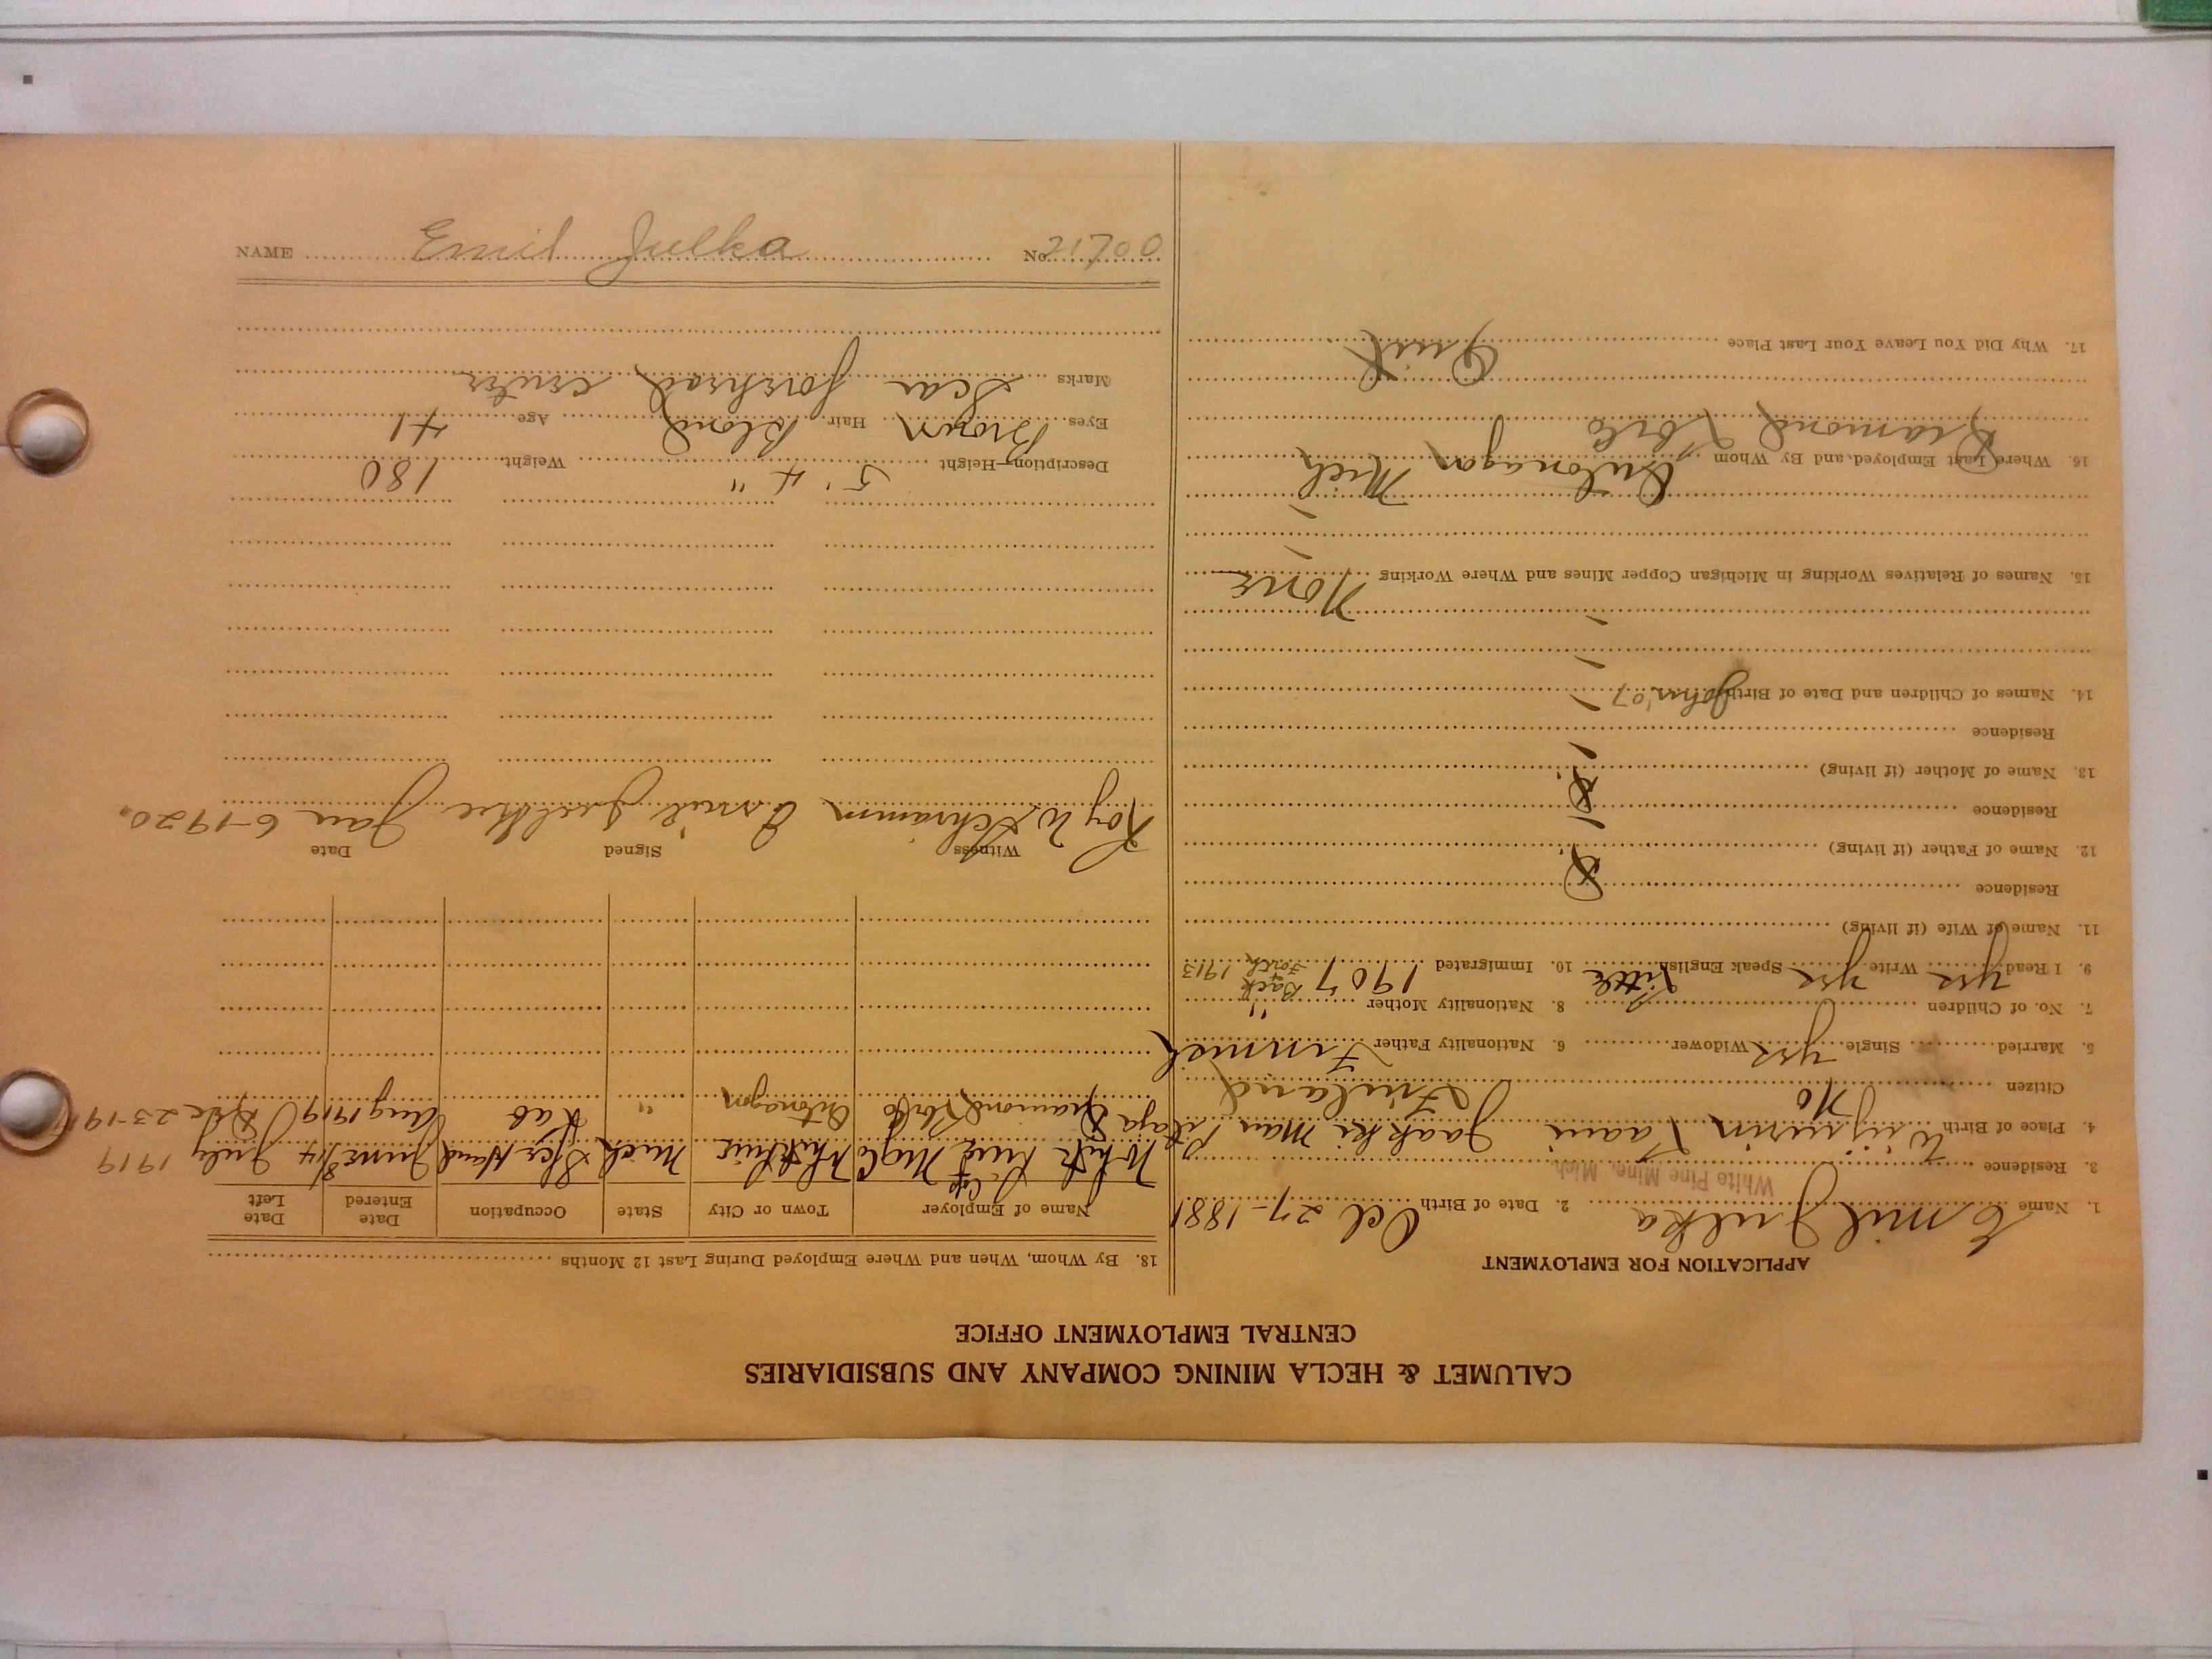 CALUMET & HECLA MINING COMPANY AND SUBSIDIARIES
CENTRAL EMPLOYMENT OFFICE
APPLICATION FOR EMPLOYMENT
1. Name Emil Julka 2. Date of Birth Oct 27-1881
White Pine Mine, Mich.
3. Residence
4. Place of Birth Wiipurin Laani Jaakki Man
Finland
Citizen No
5. Married Single yes Widower 6. Nationality Father Finnish
7. No. of Children 8. Nationality Mother "
9. I Read yes Write yes Speak English Little 10. Immigrated 1907 Back & Forth 1913
11. Name of Wife (if living)
Residence
12. Name of Father (if living) D.
Residence
13. Name of Mother (if living) D.
Residence
14. Names of Children and Date of Birth John '07
15. Names of Relatives Working in Michigan Copper Mines and Where Working
None
16. Where Last Employed, and By Whom Ontonagon Mich
Diamond
17. Why Did You Leave Your Last Place
Quit
18. By Whom, When and Where Employed During Last 12 Months
Name of Employer Town or City State Occupation Date Entered Date Left
White Pine Mich June 8/14 July 1919
Diamond Ontonagon " Lab Aug 1919 Dec 23-19
Witness Signed Date
Roy W Schramm Emil Jan 6-1920.
Description—Height 5' 4" Weight 180
Eyes Brown Hair Blond Age 41
Marks Scar forehead center
NAME Emil Julka No. 21700